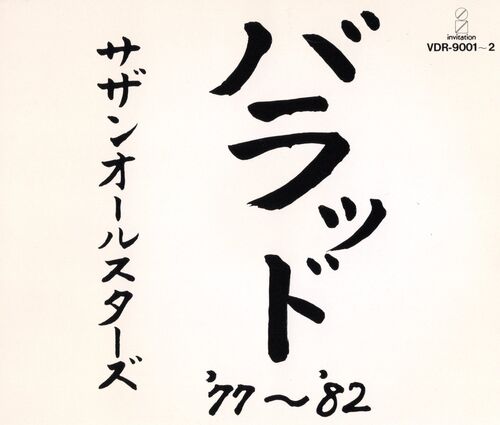 invitation
VDR-9001~2
バラッド
'77～'82
サザンオールスターズ